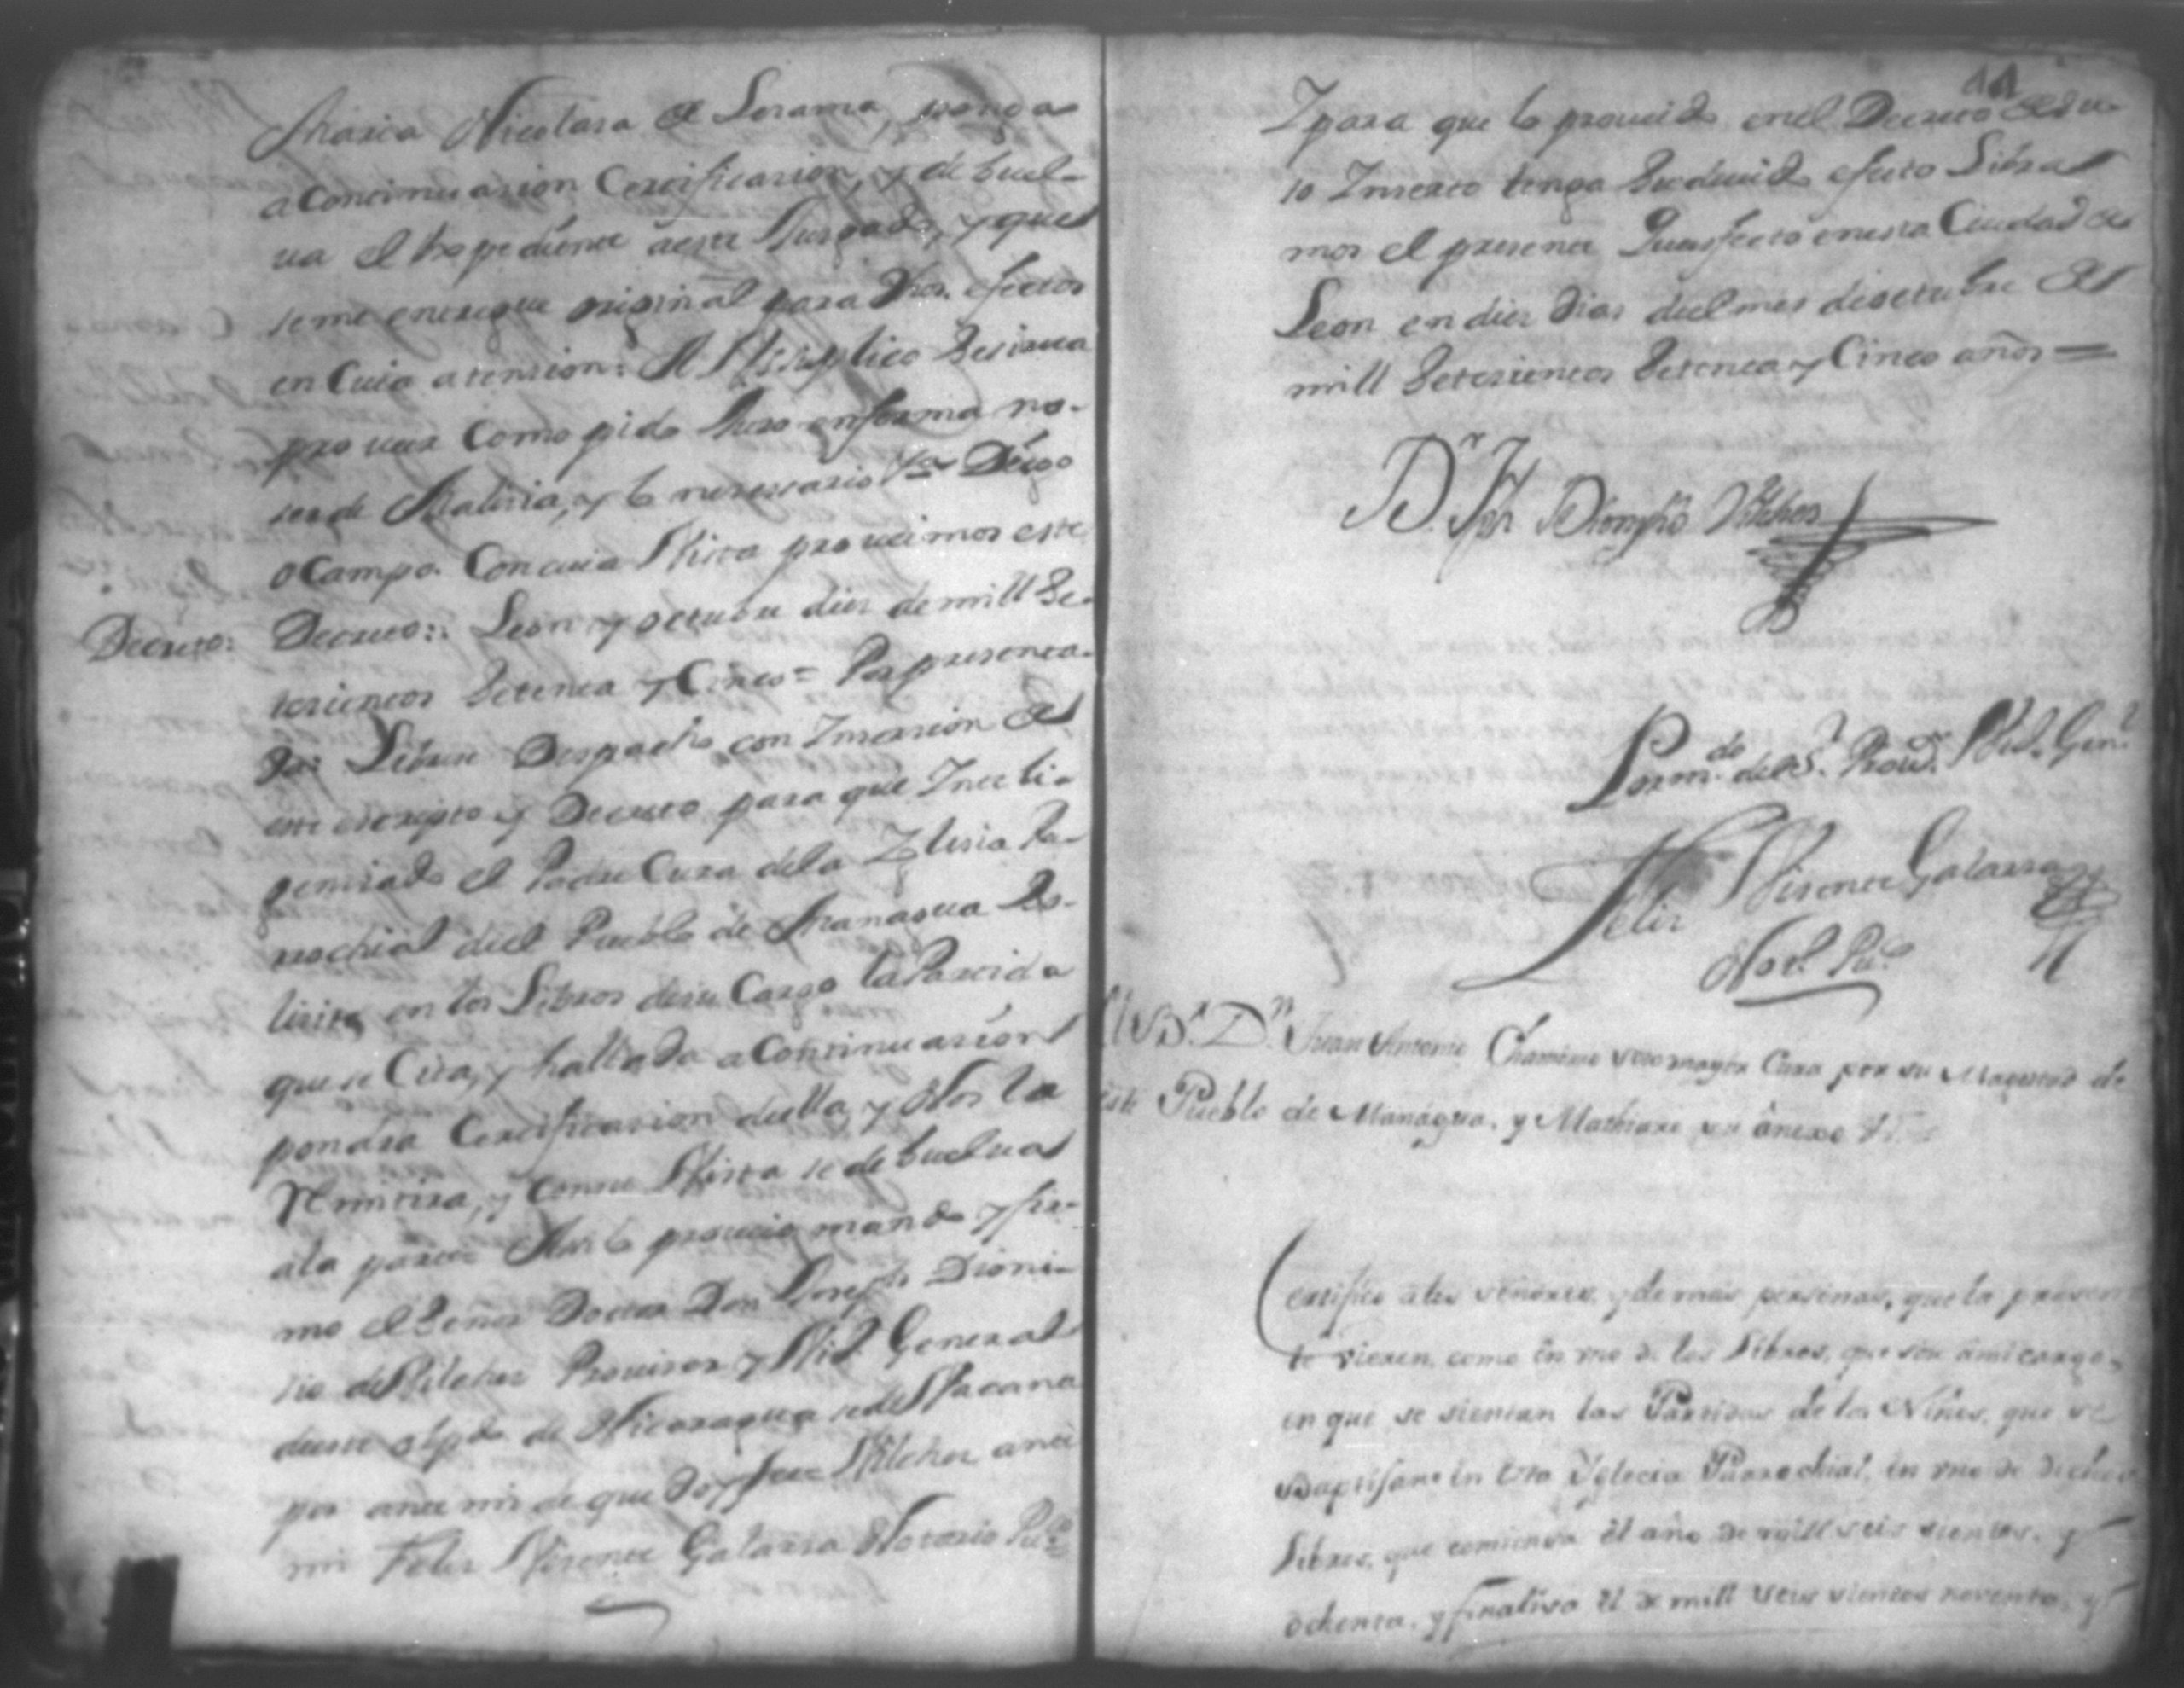 Maria Nicolasa de Lerama, ponga
a Continuacion Certificacion, y debuel-
va el Expediente a este Jusgado, y que
se me entregue original para dhos. efectos
en Cuia atencion: A V.S. suplico se sirva
proveer Como pido Juro en forma no-
ser de Malicia, y lo necessario Diego
OCampo. Con cuia Vista proveimos este
Decreto: Decreto: Leon y octubre dies de mill Se-
tecientos Setenta y Cinco = Por presenta-
do: Librese Despacho con Insercion de
este escripto y Decreto para que Inteli-
genciado el Padre Cura dela Iglesia Pa-
rrochial del Pueblo de Managua So-
licite en los Libros de su Cargo la Partida
que se Cita, y hallada a Continuacion
pondra Certificacion de ella, y Nos la
Remitira, y Con su Vista se debuelva
ala parte Asi lo proveio mando y fir-
mo el Señor Doctor Don Joseph Dioni-
sio de Vilches Provisor y Vic.o General
de este obpdo de Nicaragua sede Vacante
por ante mi de que doy fee = Vilches ante
mi Felis Visente Galarsa Notario Pu.co
44
Y para que lo proveido en el Decreto de su-
so Inserto tenga su devido efecto Libra-
mos el presente Quasfecto en esta Ciudad de
Leon en dies dias del mes de octubre de
mill Setecientos Setenta y Cinco años =
D.r Jph Dionysio Vilches
Por m.do del S.r Provis.r Vic.o Gen.l
Felis Visente Galarsa
Not.o Pu.co
El B.r D.n Juan Antonio Chamorro Sotomayor Cura por su Magestad de
este Pueblo de Managua, y Matheare su anexo
Certifico a los señores, y demas personas, que la presen
te vieren, como en uno de los Libros, que son a mi cargo,
en que se sientan las Partidas de los Niños, que se
Baptisan en esta Yglecia Parrochial, en uno de dichos
Libros, que comiensa el año de mill seis sientos, y
ochenta, y finalisa el de mill seis sientos noventa, y